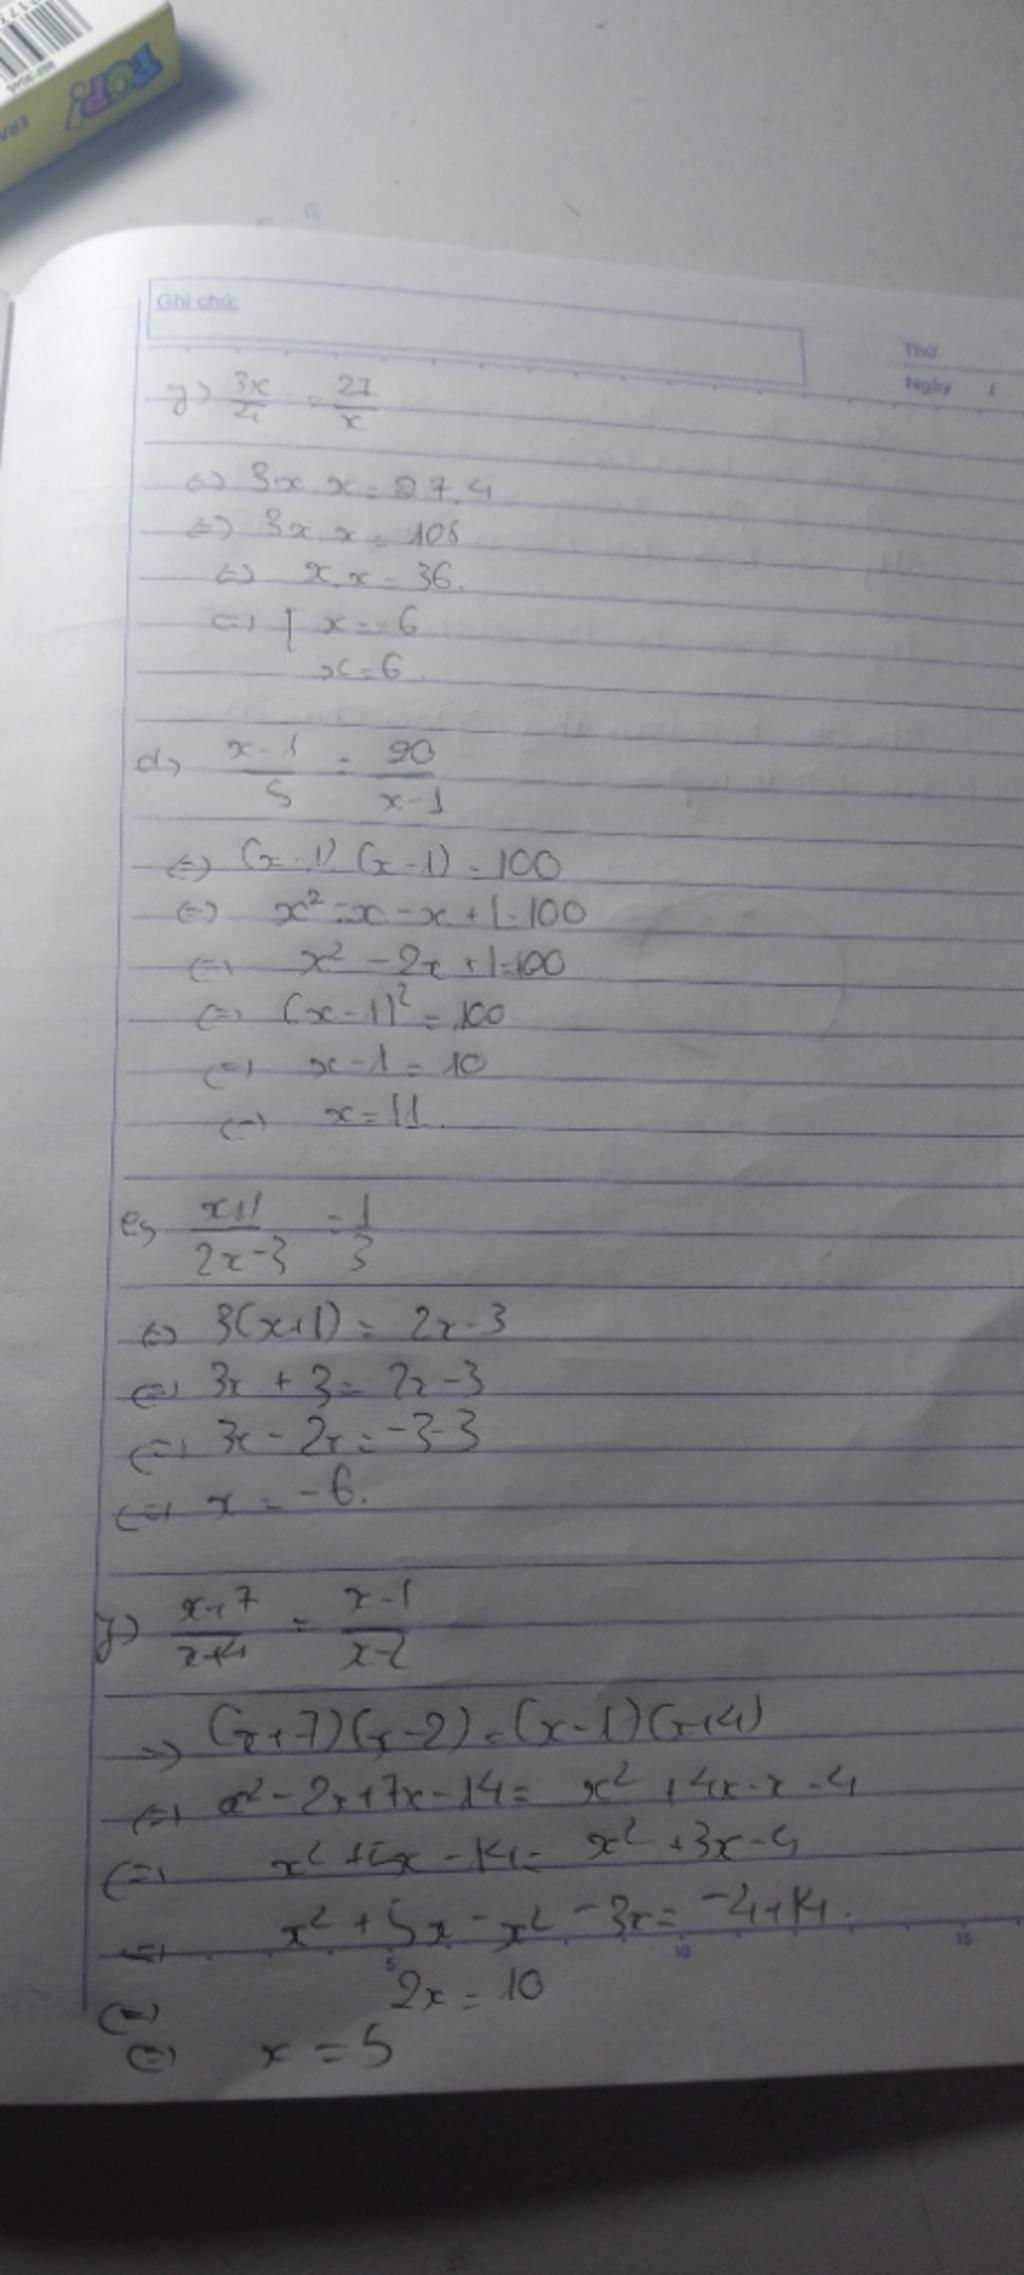 POP!
ERA
Ghi chú:
Thứ
Ngày /
y) 3x/4 = 27/x
<=> 3x.x = 27.4
<=> 3x.x = 108
<=> x.x = 36.
<=> [ x = -6
x = 6.
d) x-1/5 = 20/x-1
<=> (x-1).(x-1) = 100
<=> x² - x - x + 1 = 100
<=> x² - 2x + 1 = 100
<=> (x-1)² = 100
<=> x-1 = 10
<=> x = 11.
e) x+1/2x-3 = 1/3
<=> 3(x+1) = 2x-3
<=> 3x + 3 = 2x-3
<=> 3x - 2x = -3-3
<=> x = -6.
y) x+7/x+4 = x-1/x-2
=> (x+7)(x-2) = (x-1)(x+4)
<=> x² - 2x + 7x - 14 = x² + 4x - x - 4
<=> x² + 5x - 14 = x² + 3x - 4
<=> x² + 5x - x² - 3x = -4 + 14.
5 10 15
<=> 2x = 10
<=> x = 5